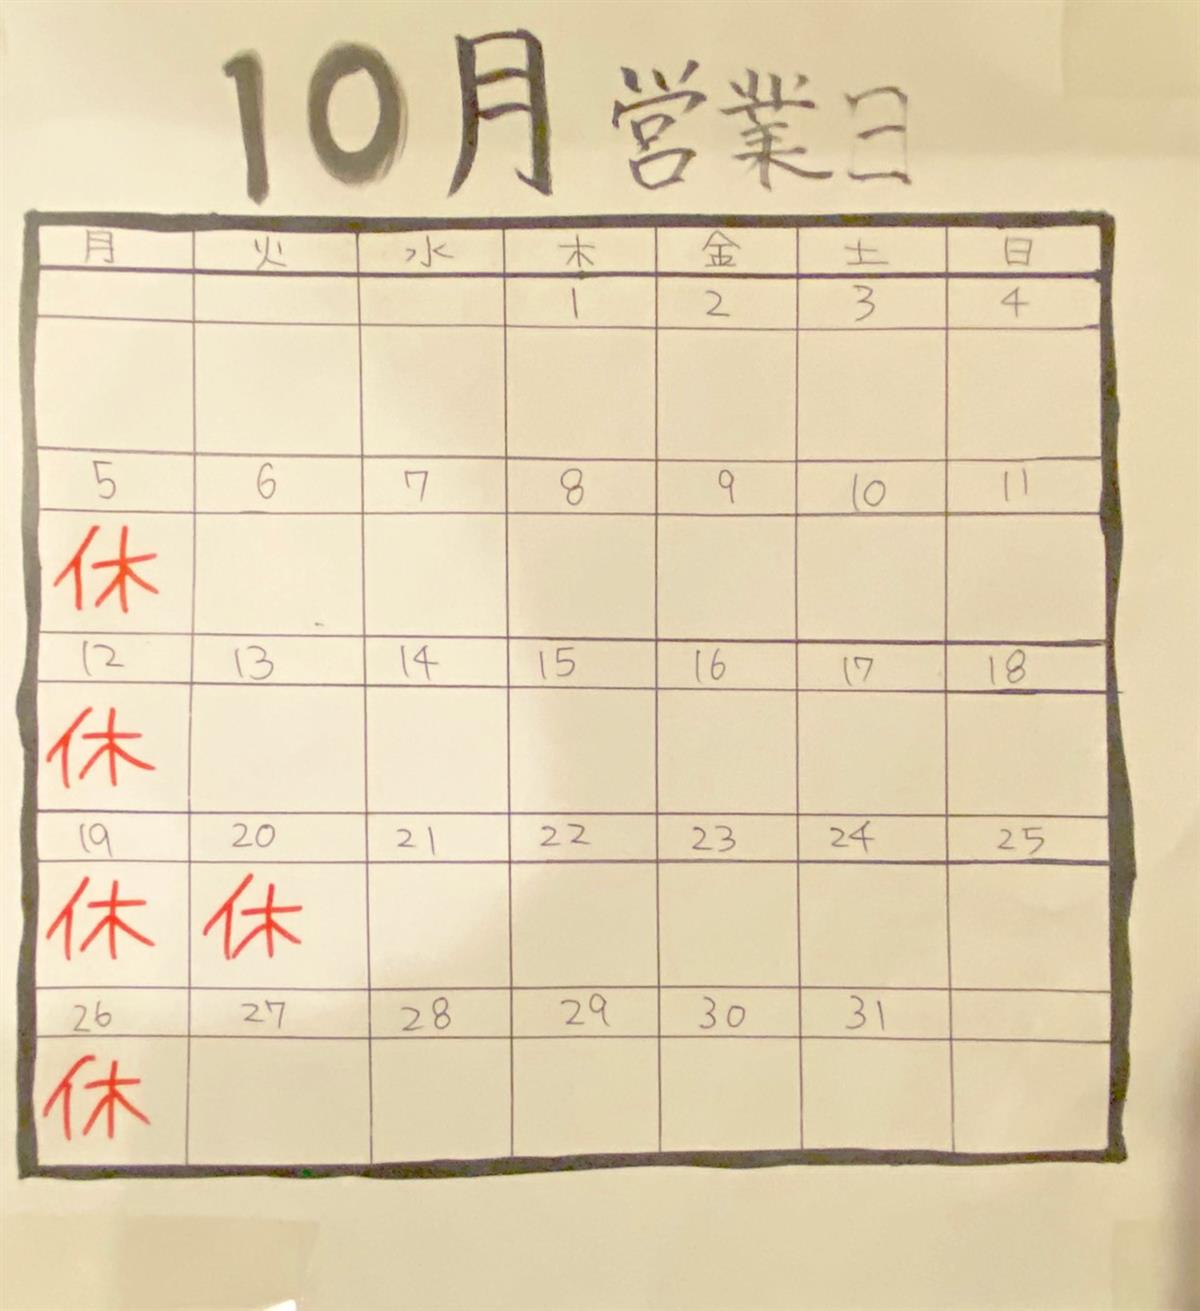 10月 営業日
月 火 水 木 金 土 日
1 2 3 4
5 6 7 8 9 10 11
休
12 13 14 15 16 17 18
休
19 20 21 22 23 24 25
休 休
26 27 28 29 30 31
休